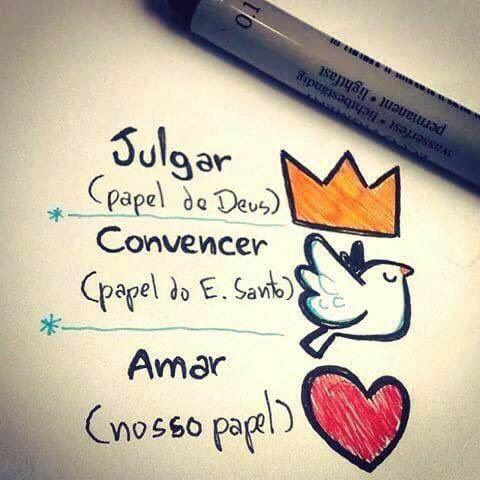 0.1
wasserfest • lichtbeständig
permanent • lightfast
Julgar
(papel de Deus)
Convencer
(papel do E. Santo)
Amar
(nosso papel)